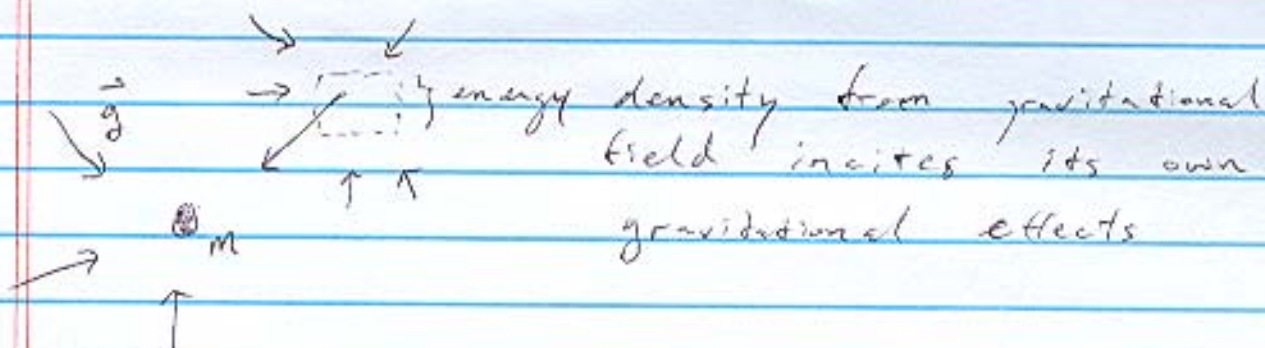 g⃗
} energy density from gravitational
field incites its own
gravitational effects
m